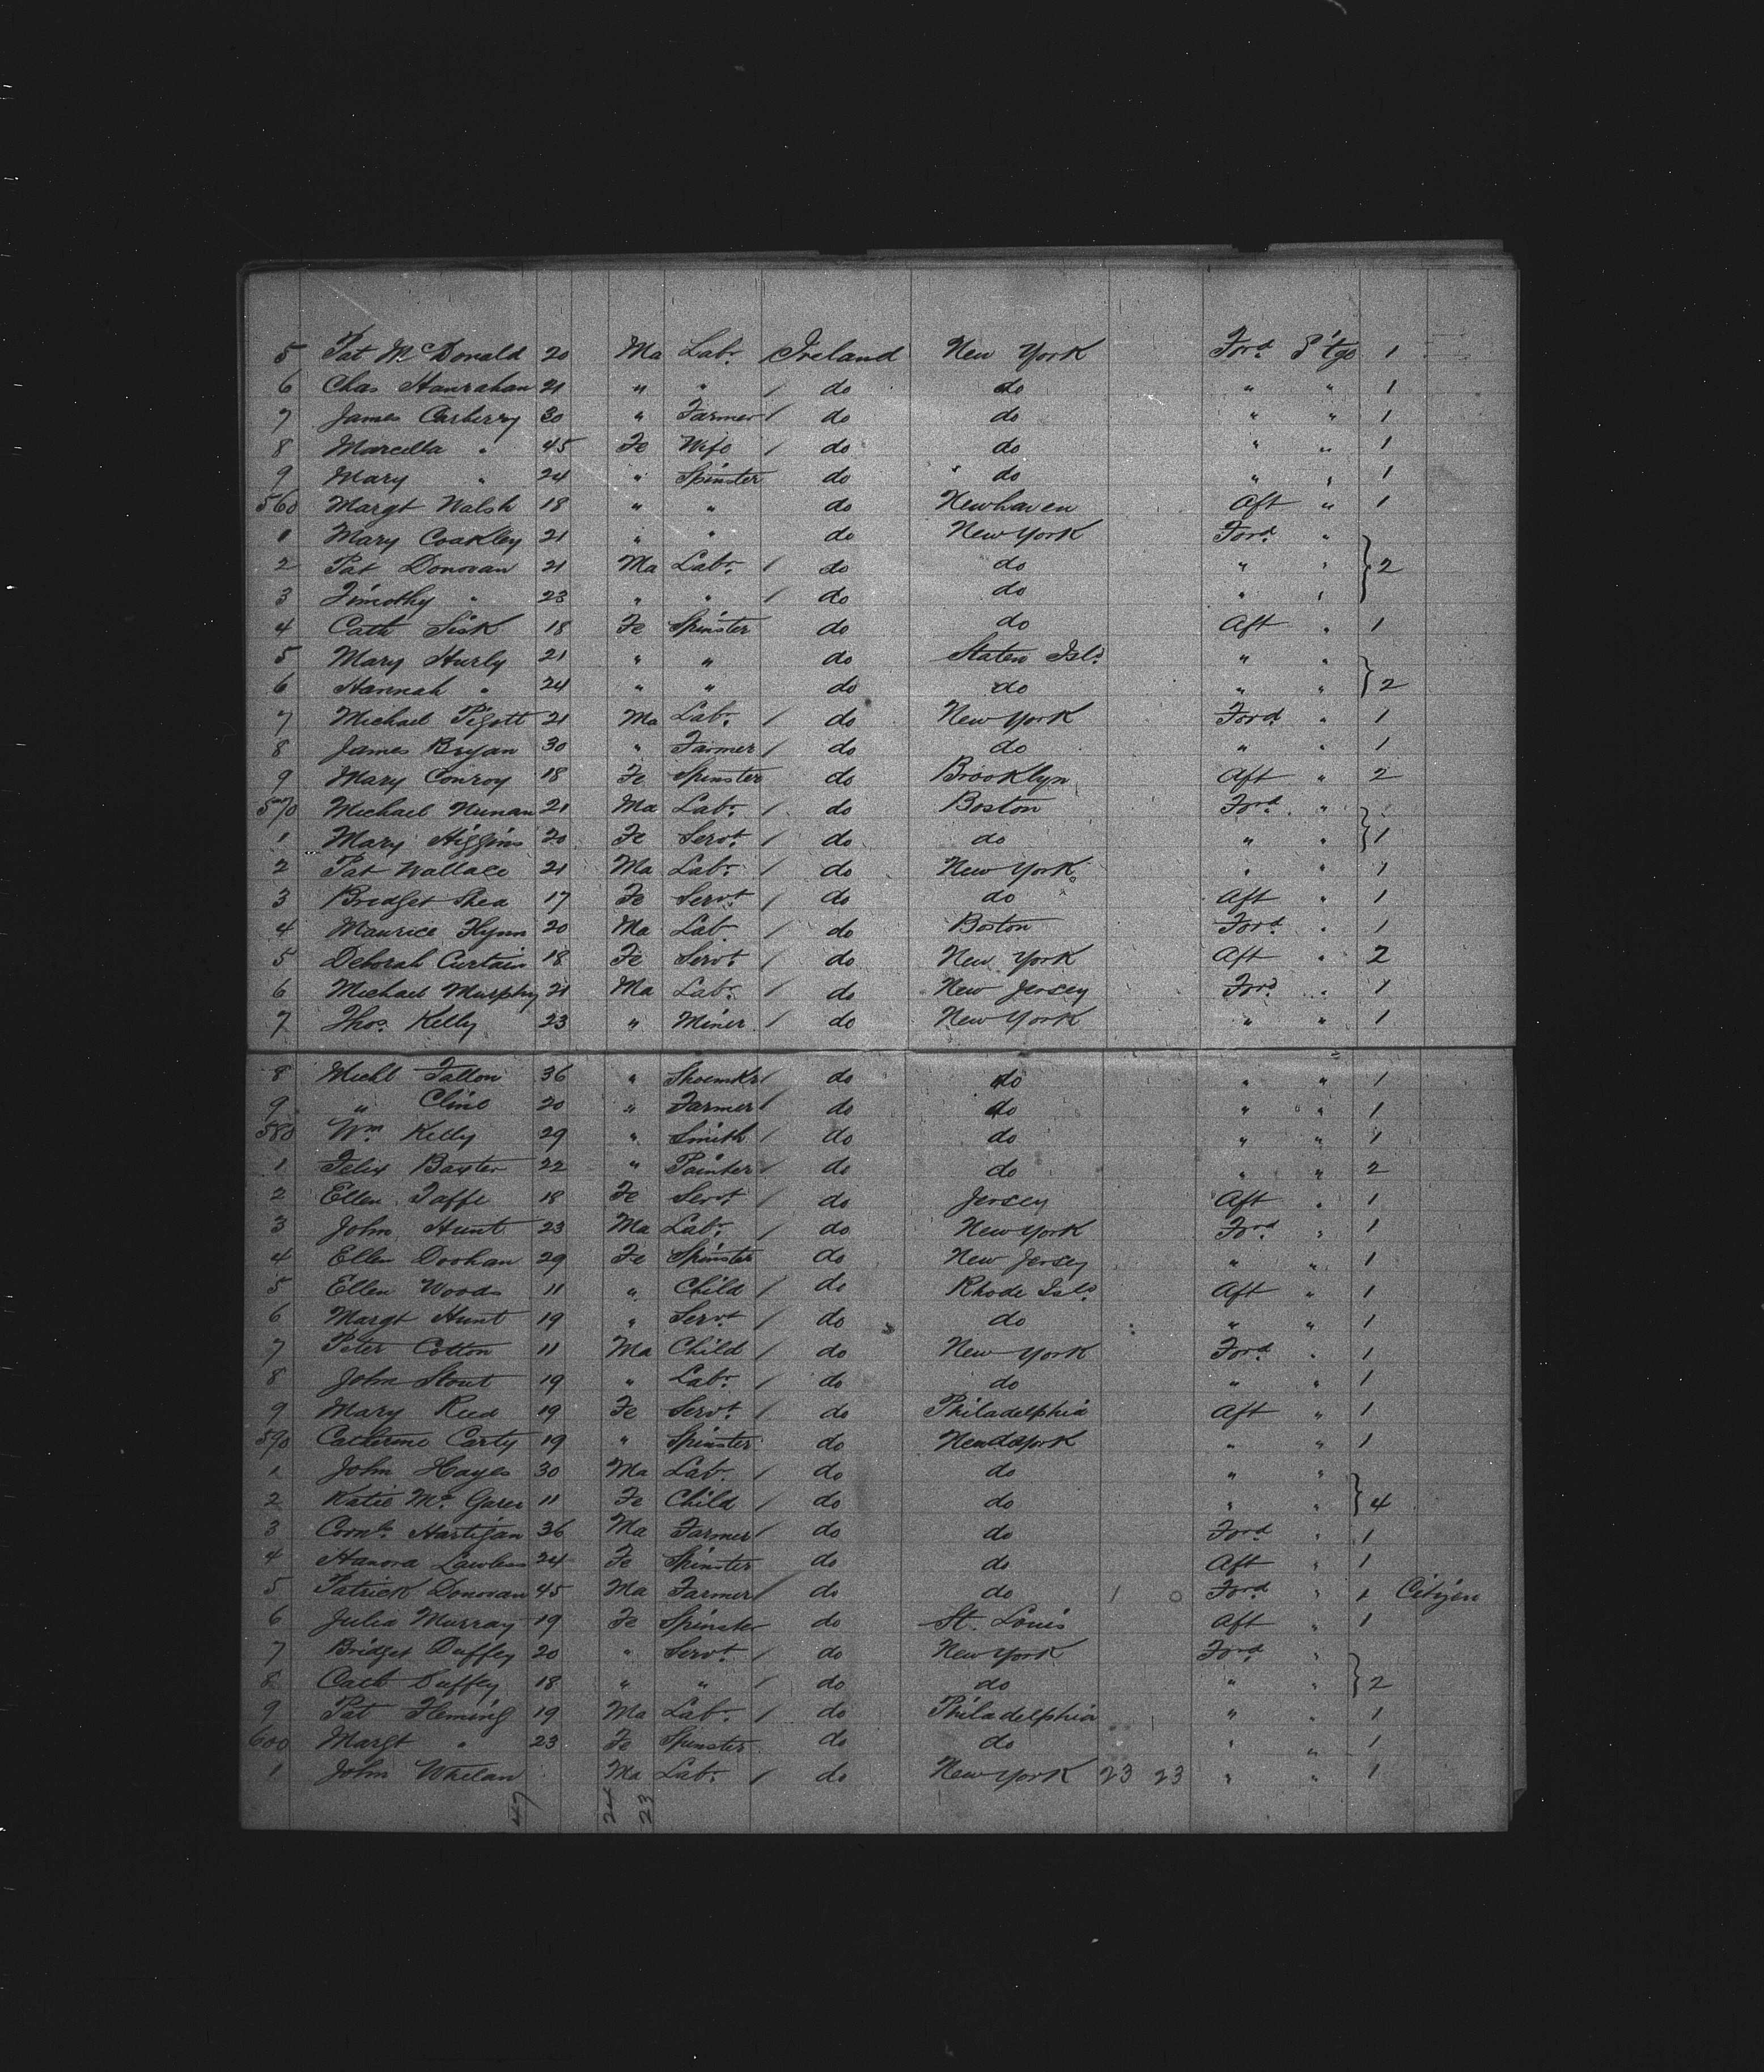 5 Pat McDonald 20 Ma Labr. / Ireland New York Ford. S'tge 1
6 Chas Hanrahan 21 " " / do do " " 1
7 James Carberry 30 " Farmer / do do " " 1
8 Marcella " 45 Fe Wife / do do " " 1
9 Mary " 24 " Spinster do do " " 1
560 Margt Walsh 18 " " do Newhaven Aft " 1
1 Mary Coakley 21 " " do New York Ford. "
2 Pat Donovan 21 Ma Labr. / do do " " } 2
3 Timothy " 23 " " / do do " "
4 Cath Sisk 18 Fe Spinster do do Aft " 1
5 Mary Hurly 21 " " do Staten Isld. " "
6 Hannah " 24 " " do do " " } 2
7 Michael Pigott 21 Ma Labr. / do New York Ford. " 1
8 James Bryan 30 " Farmer / do do " " 1
9 Mary Conroy 18 Fe Spinster do Brooklyn Aft " 2
570 Michael Nunan 21 Ma Labr. / do Boston Ford. "
1 Mary Higgins 20 Fe Servt. / do do " " } 1
2 Pat Wallace 21 Ma Labr. / do New York " " 1
3 Bridget Shea 17 Fe Servt. / do do Aft " 1
4 Maurice Flynn 20 Ma Lab / do Boston Ford. " 1
5 Deborah Curtain 18 Fe Servt. / do New York Aft " 2
6 Michael Murphy 21 Ma Labr. / do New Jersey Ford. " 1
7 Thos. Kelly 23 " Miner / do New York " " 1
8 Michl Fallon 36 " Shoemkr / do do " " 1
9 " Cline 20 " Farmer / do do " " 1
580 Wm Kelly 29 " Smith / do do " " 1
1 Felix Baxter 22 " Painter / do do " " 2
2 Ellen Taffe 18 Fe Servt / do Jersey Aft " 1
3 John Hunt 23 Ma Labr. / do New York Ford. " 1
4 Ellen Doohan 29 Fe Spinster do New Jersey " " 1
5 Ellen Woods 11 " Child / do Rhode Isld. Aft " 1
6 Margt Hunt 19 " Servt / do do " " 1
7 Peter Cotton 11 Ma Child / do New York Ford. " 1
8 John Stout 19 " Labr. / do do " " 1
9 Mary Reed 19 Fe Servt. / do Philadelphia Aft " 1
590 Catherine Carty 19 " Spinster do New York " " 1
1 John Hayes 30 Ma Labr. / do do " "
2 Katie Mc 11 Fe Child / do do " " } 4
3 Cornls. Hartigan 36 Ma Farmer / do do Ford. " 1
4 Hanora Lawless 24 Fe Spinster do do Aft " 1
5 Patrick Donovan 45 Ma Farmer / do do 1 0 Ford " 1 Citizen
6 Julia Murray 19 Fe Spinster do St. Louis Aft " 1
7 Bridget Duffey 20 " Servt. / do New York Ford. "
8 Cath Duffey 18 " " / do do " " } 2
9 Pat Fleming 19 Ma Labr. / do Philadelphia " " 1
600 Margt " 23 Fe Spinster do do " " 1
1 John Whelan Ma Labr. / do New York 23 23 " " 1
47 24 23